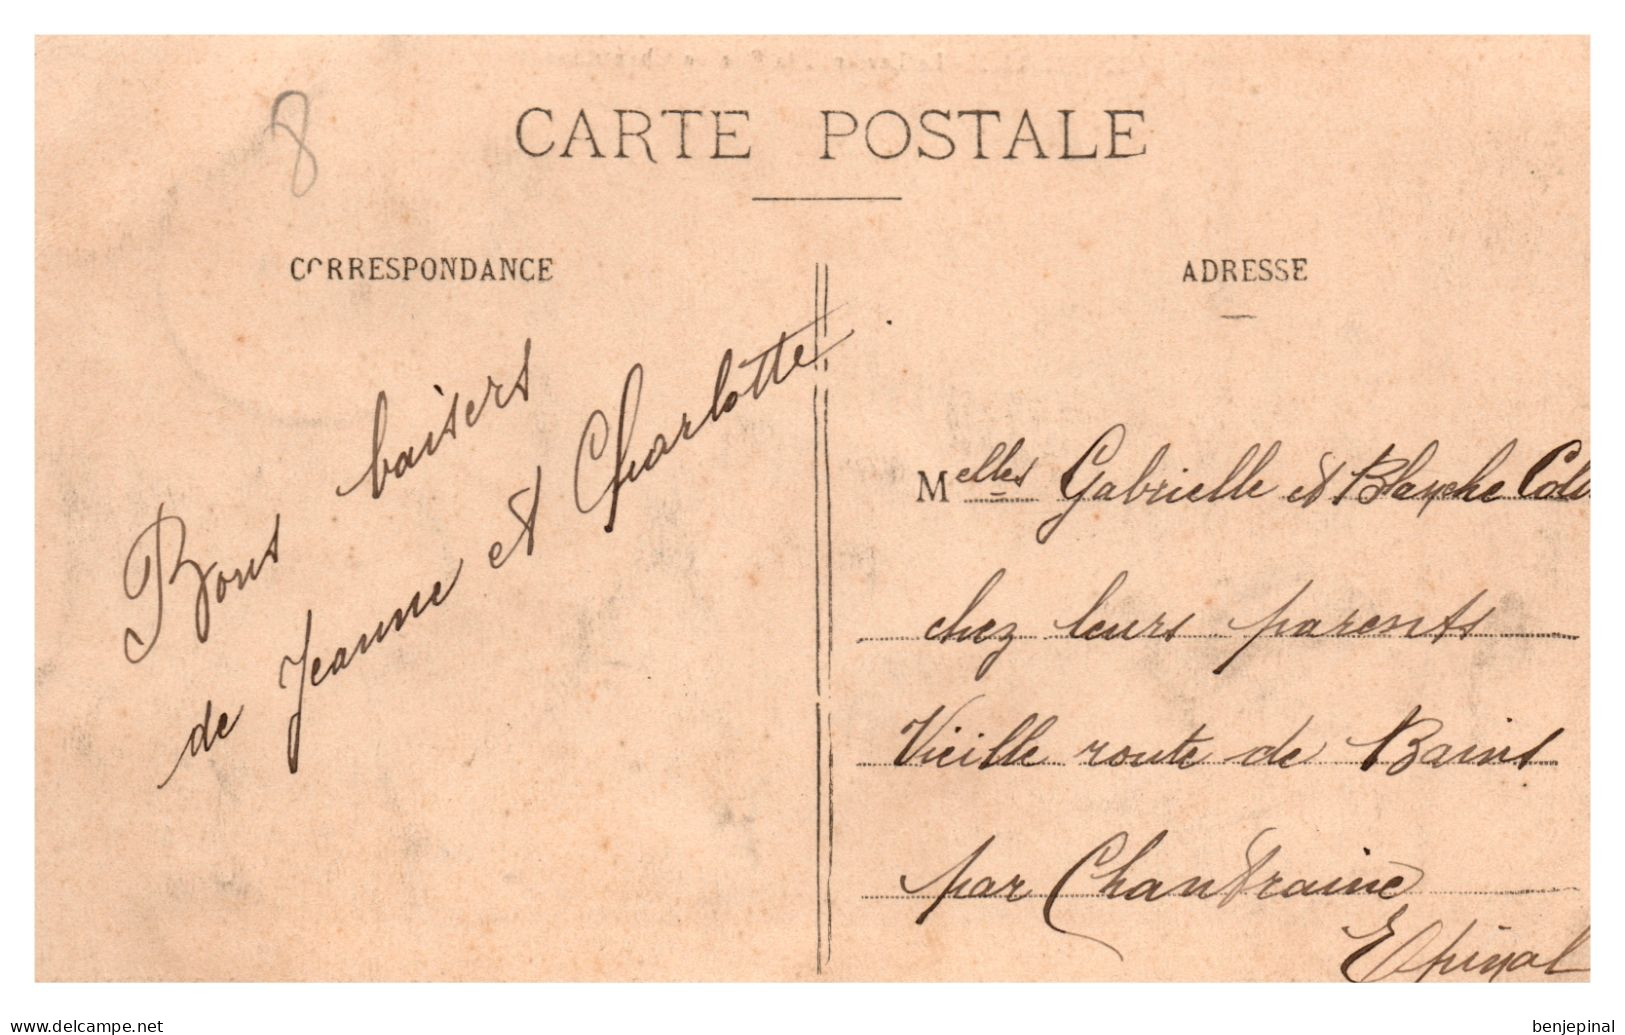 8
CARTE POSTALE
CORRESPONDANCE
Bons baisers
de Jeanne et Charlotte.
ADRESSE
Melles Gabrielle et Blanche
chez leurs parents
Vieille route de Bains
par Chantraine
Epinal
www.delcampe.net
benjepinal